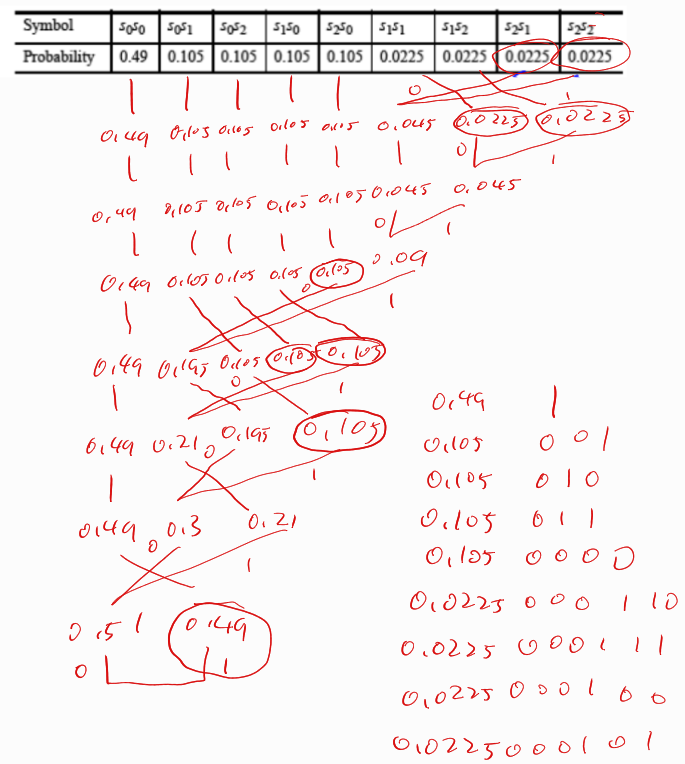 Symbol s0s0 s0s1 s0s2 s1s0 s2s0 s1s1 s1s2 s2s1 s2s2
Probability 0.49 0.105 0.105 0.105 0.105 0.0225 0.0225 0.0225 0.0225
0 1
0.49 0.105 0.105 0.105 0.105 0.045 0.0225 0.0225
0 1
0.49 0.105 0.105 0.105 0.105 0.045 0.045
0 1
0.49 0.105 0.105 0.105 0.105 0.09
0 1
0.49 0.195 0.105 0.105 0.105
0 1
0.49 0.21 0.195 0.105
0 1
0.49 0.3 0.21
0 1
0.51 0.49
0 1
0.49 1
0.105 001
0.105 010
0.105 011
0.105 0000
0.0225 000110
0.0225 000111
0.0225 000100
0.0225 000101